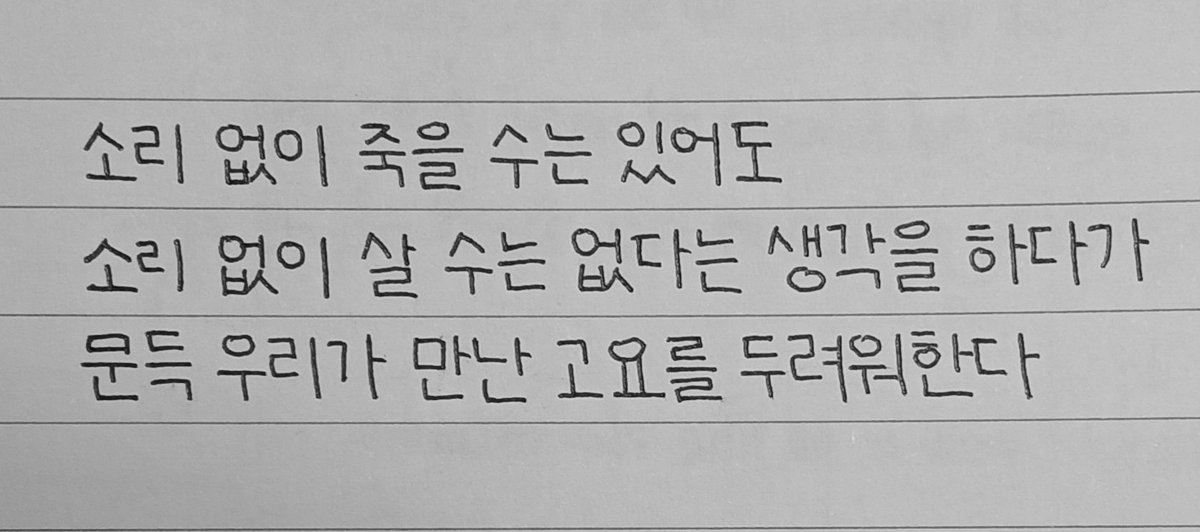 소리 없이 죽을 수는 있어도
소리 없이 살 수는 없다는 생각을 하다가
문득 우리가 만난 고요를 두려워한다